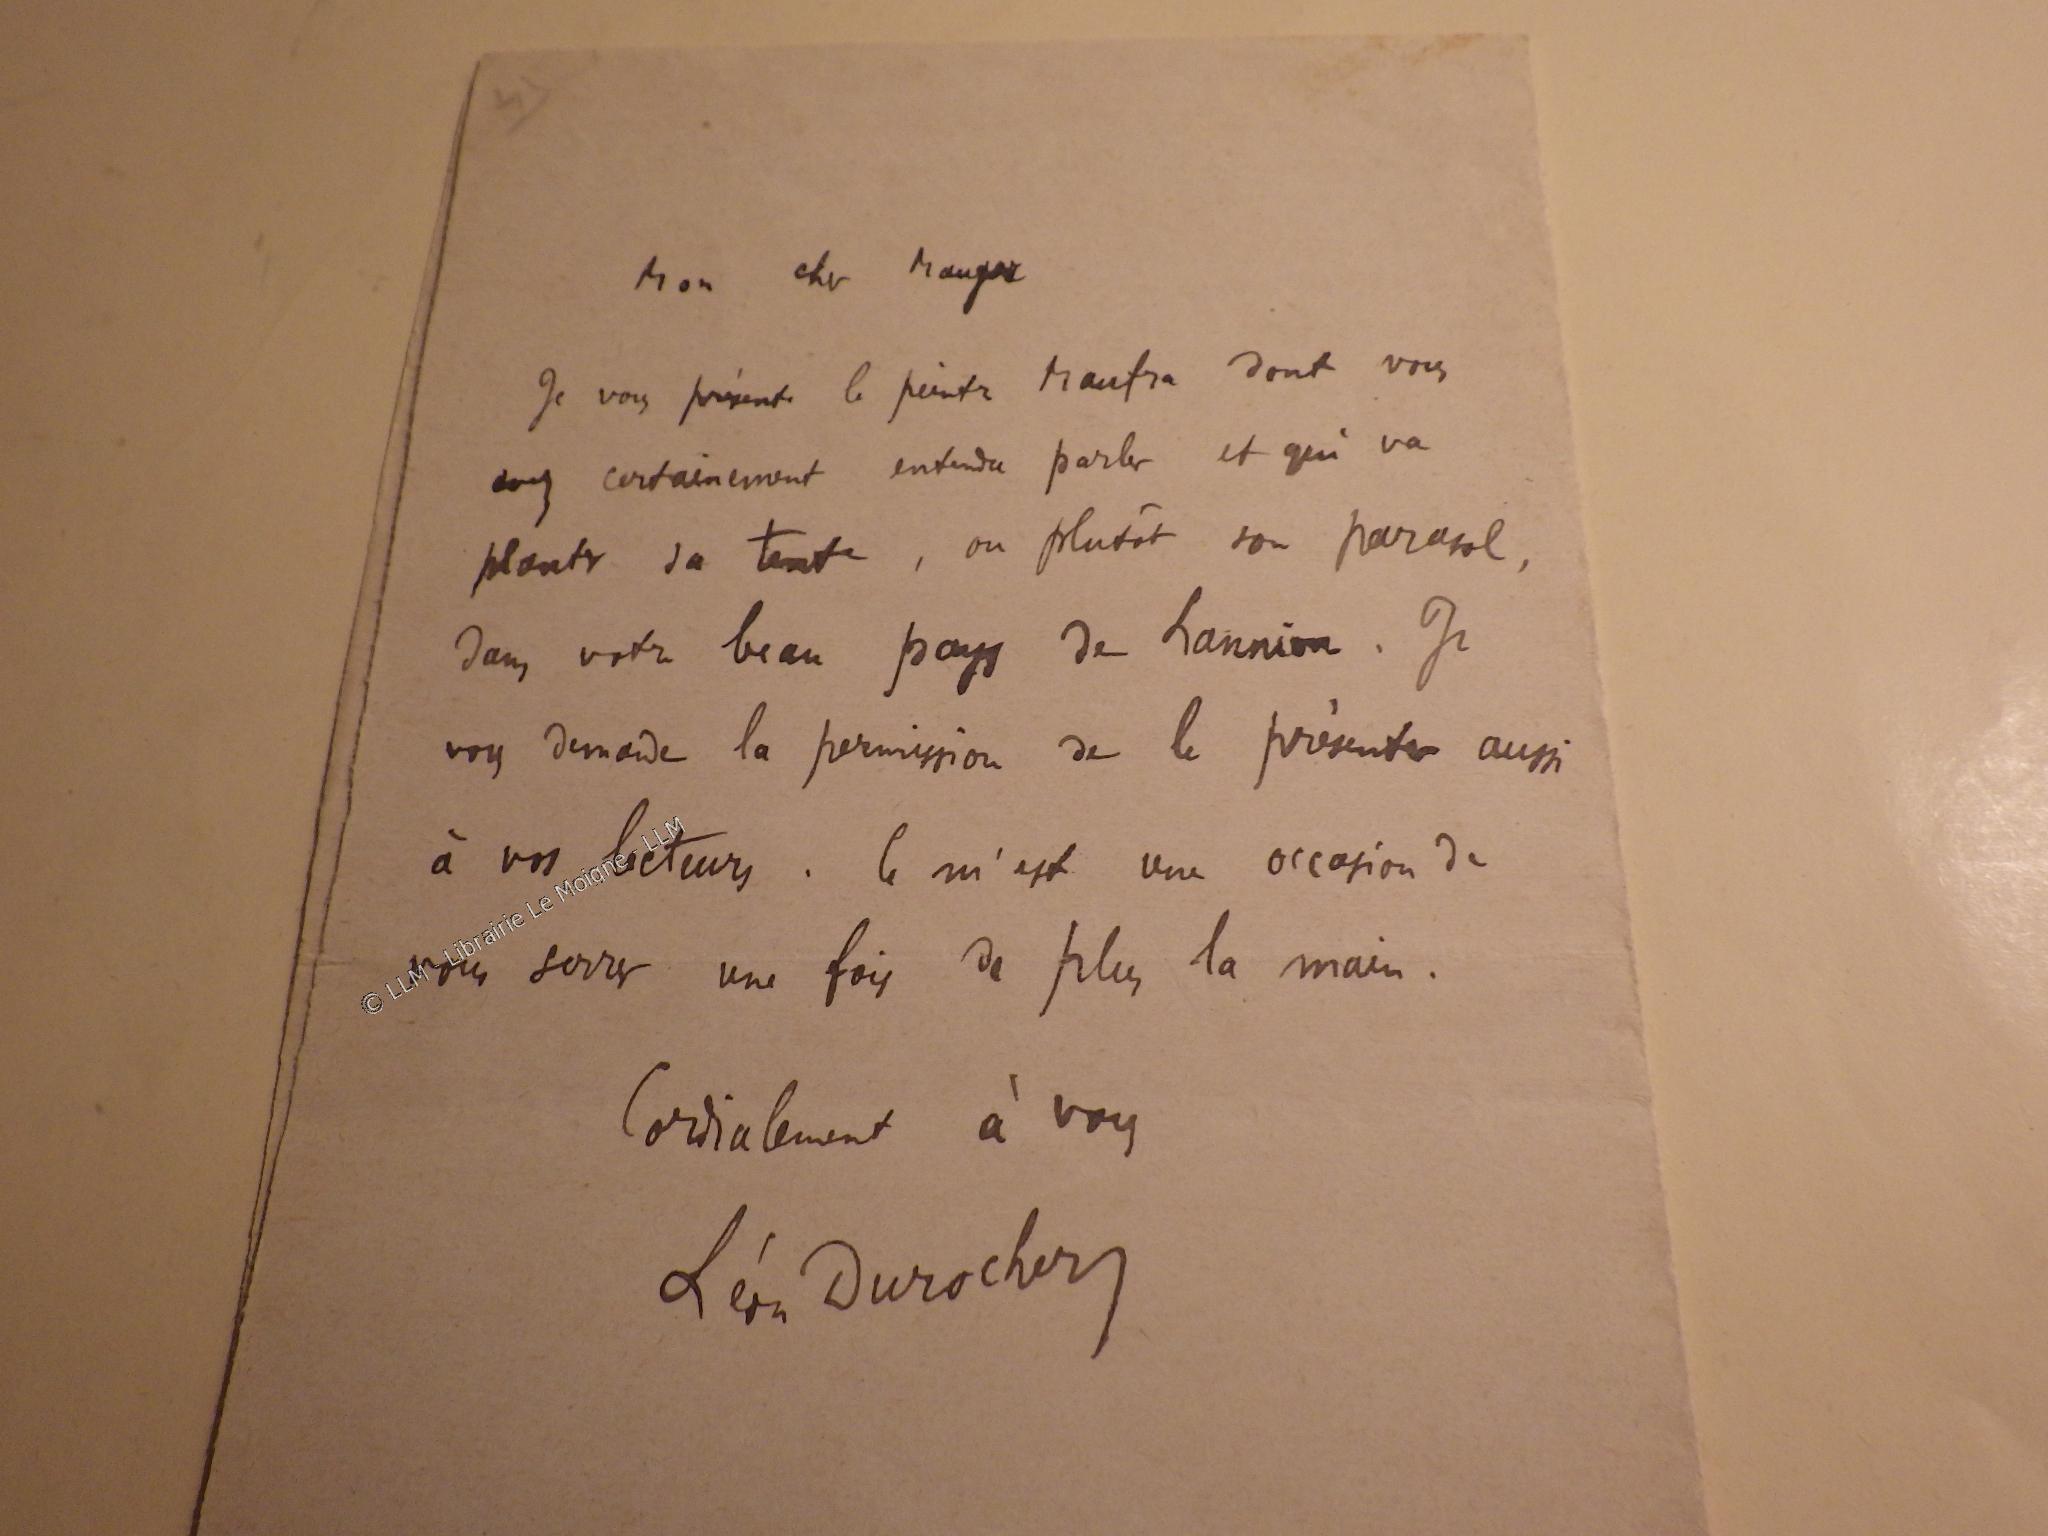 Mon cher Mauger
Je vous présente le peintre Maufra dont vous
avez certainement entendu parler et qui va
planter sa tente, ou plutôt son parasol,
dans votre beau pays de Lannion. Je
vous demande la permission de le présenter aussi
à vos lecteurs. Ce m'est une occasion de
vous serrer une fois de plus la main.
Cordialement à vous
Léon Durocher
© LLM - Librairie Le Moigne - LLM